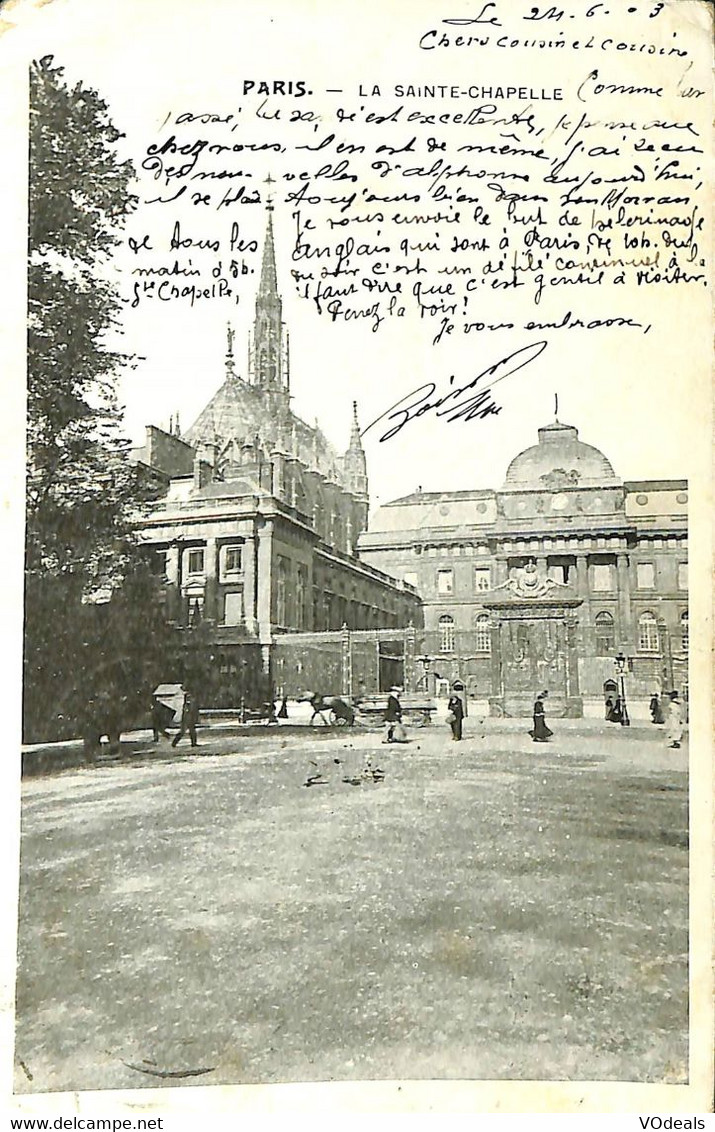 Le 24-6-03
Chers cousin et cousine
PARIS. — LA SAINTE-CHAPELLE
Comme par
passé, la santé est excellente, je pense que
chez vous, il en est de même, j'ai reçu
des nouvelles d'Alphonse aujourd'hui,
il se plaît toujours bien dans son Morvan,
Je vous envoie le but de pelerinage
de tous les anglais qui sont à Paris, de 10h. du
matin à 5h. du soir c'est un défilé continuel à la
Ste Chapelle, il faut dire que c'est gentil à visiter.
Venez la voir!
Je vous embrasse,
VOdeals